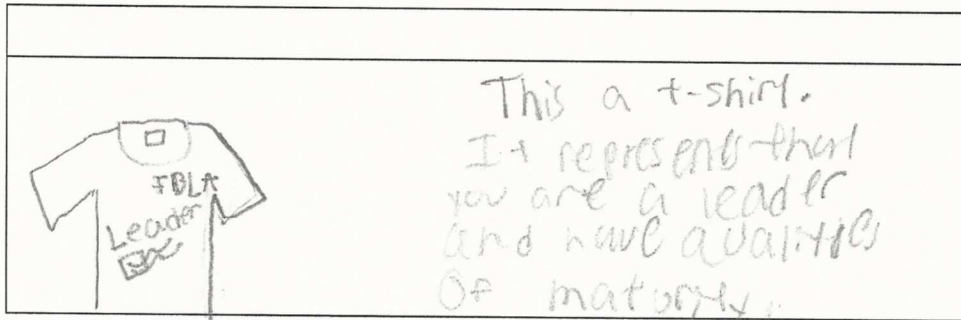 FBLA
Leader
This a t-shirt.
It represents that
you are a leader
and have qualities
of maturity.